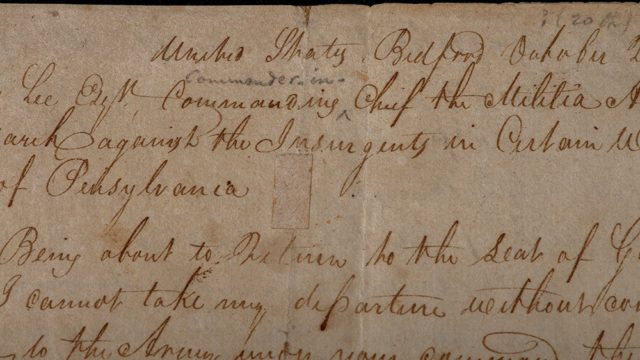 ? (20th)
United States Bedford October 2
Commander-in-
Lee Esqr. Commanding Chief the Militia A
arch against the Insurgents in Certain
of Pensylvania
Being about to Return to the Seat of G
I cannot take my departure without con
to the Army under your command the